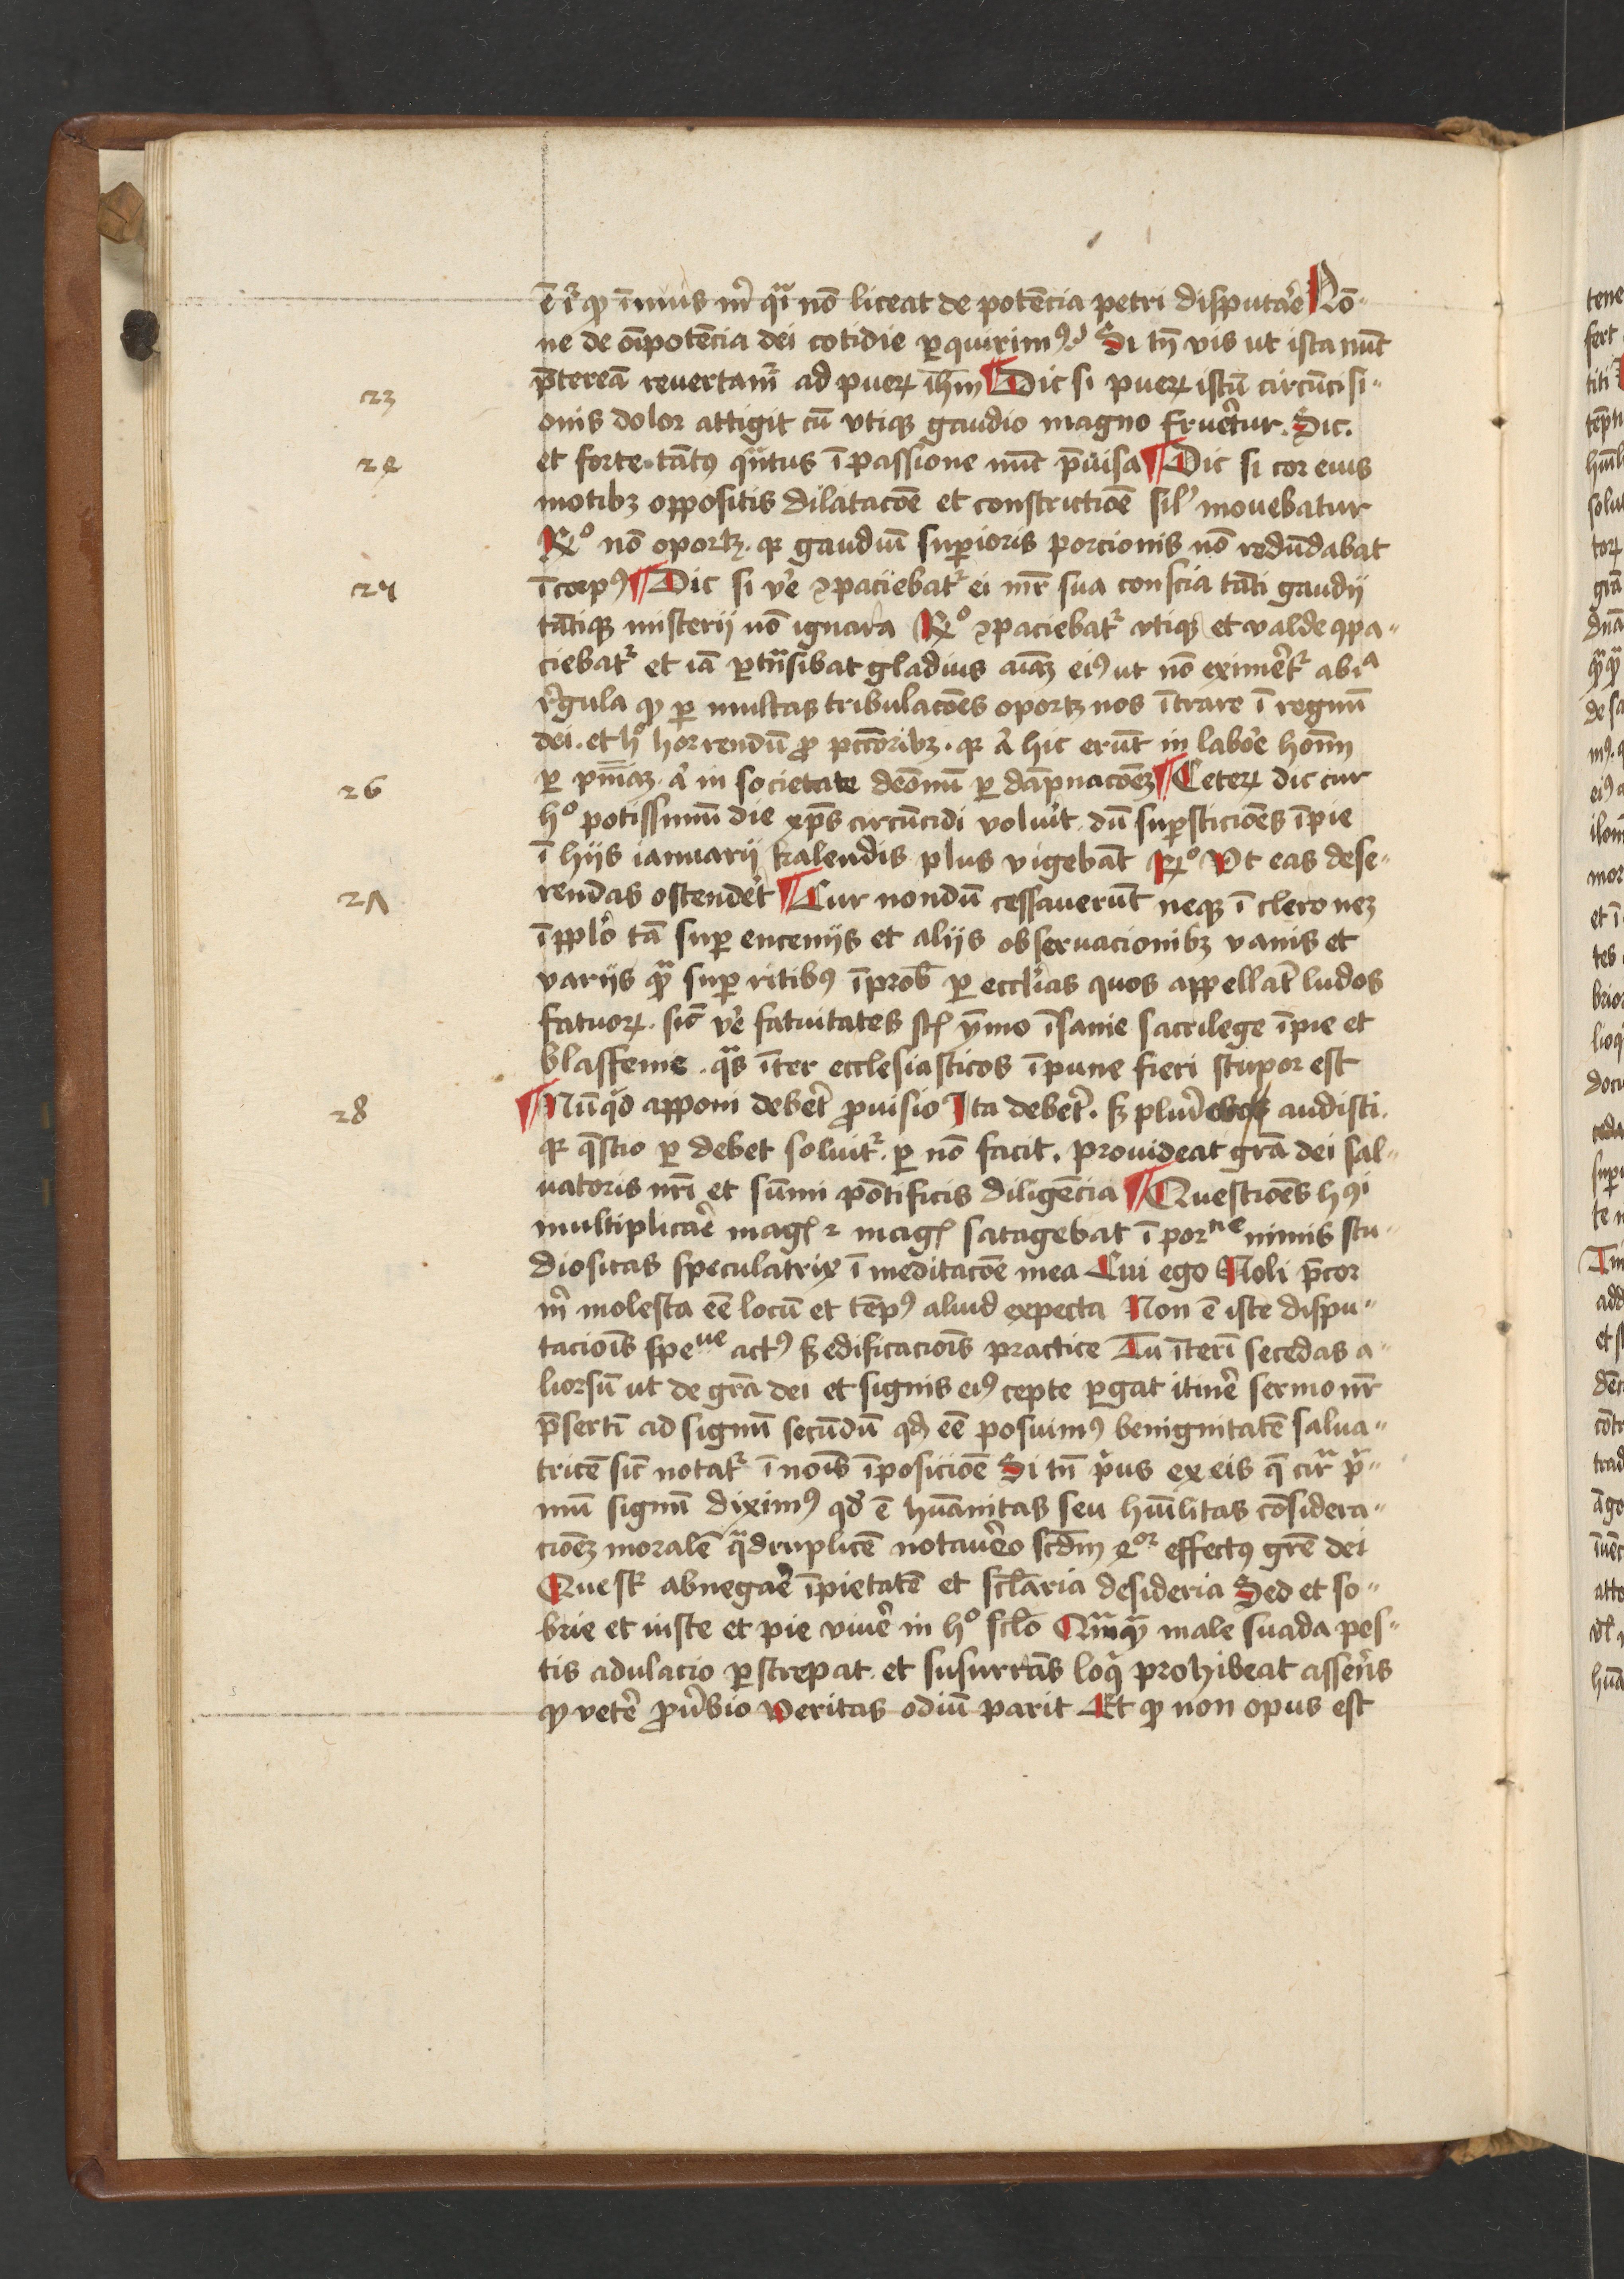 ē īr ꝙ īnuius m̄ qͣi nō liceat de potēcia petri disputar̄e Nō-
ne de oīpotēcia dei cotidie ꝑquirimꝰ Si tn̄ vis ut ista nūc
p̄tereā reuertamʳ ad pueꝝ ih̄m ¶ Dic si pueꝝ istū circūcisi-
23
onis dolor attigit cū vtiqꝫ gaudio magno frueretur. Dic.
24
et forte tātꝰ qͣntus ī passione nūc p̄uisa ¶ Dic si cor eius
motibꝫ oppositis dilatacōe et constrictiōe sil' mouebatur
Rº nō oportꝫ. qꝛ gaudiū suꝑioris porcionis nō redūdabat
25
ī corpꝰ ¶ Dic si ve̓ ꝯpaciebatʳ ei mr̄ sua conscia tāti gaudij
tātiqꝫ misterij nō ignara Rº ꝯpaciebatʳ vtiqꝫ et valde ꝯpa-
ciebatʳ et iā ꝑtn̄sibat gladius aīaꝫ eiꝰ ut nō eximeretʳ ab iᵃ
re̓gula ꝙ ꝑ multas tribulacōes oportꝫ nos ītrare ī regnū
dei. et hº horrendū ꝓ pctōribꝫ. qꝛ aᷓ hic erūt in labore̓ hoīm
26
ꝑ pn̄iaꝫ. aᷓ in societate demonū ꝑ dāpnacōeꝫ ¶ Ceteꝝ dic cur
hº potissimū die xp̄s circūcidi voluit. dū suꝑsticiōes īpie
ī hijs ianuarij kalendis plus vigebāt Rº Vt eas dese-
27
rendas ostendet̓ ¶ Cur nondū cessauerūt neqꝫ ī clero neqꝫ
ī pplo̓ tā suꝑ encenijs et alijs obseruacionibꝫ vanis et
varijs qᷓ suꝑ ritibꝰ īprob̄ ꝑ eccl̓ias quos appellāt ludos
fatuoꝝ. sic̄ ve̓ fatuitates st̄ ymo īsanie sacrilege īpie et
blasfeme. qͣs īter ecclesiasticos īpune fieri stupor est
28
¶ Nūqͥd apponi deberet ꝓuisio Ita deberet. sꝫ plur̓ies audisti.
qꝛ qͣstio ꝑ debet soluitʳ. ꝑ nō facit. prouideat grā dei sal-
uatoris nr̄i et sūmi pōtificis diligēcia ¶ Questiōes hꝰi
multiplicar̄e mag̓ ⁊ mag̓ satagebat ī porⁿᵉ nimis stu-
diositas speculatrix ī meditacōe mea Cui ego Noli p̄cor
m̄ molesta eē̄ locū et tēpꝰ aliud expecta Non ē iste dispu-
tacioīs speᵘᵉ actꝰ sꝫ edificacioīs practice Tu īterī secedas a-
liorsū ut de grā dei et signis eiꝰ cepte ꝑgat itinere̓ sermo nr̄
p̄sertī ad signū secūdū qd̓ eē̄ posuimꝰ benignitatē salua-
tricē sic̄ notatʳ ī noīs īposiciōe Si tn̄ pͥus ex eis q̄ circͣ pͥ-
mū signū diximꝰ qd̓ ē hūanitas seu hūilitas cōsidera-
ciōeꝫ moralē qͣdruplicē notauero̓ scd̄m 4ᵒʳ effectꝰ grē dei
Que st̄ abnegar̄e īpietatē et scl̄aria desideria Sed et so-
brie et iuste et pie viuere̓ in hº scl̄o Qͣmqͣ male suada pes-
tis adulacio ꝑstrepat. et susurrās loqͥ prohibeat asserēs
ꝙ vetere̓ ꝓu̓bio Veritas odiū parit Et ꝙ non opus est